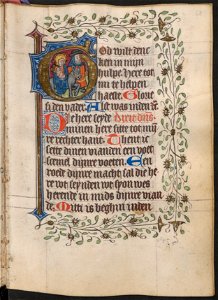 God wilt denc
ken in mijn
hulpe here tot
mi te helpen
haeste Glorie
si den vader Als
het was inden
Die here seide Dixit dns
minen here sitte tot mijn
re rechter hant Thent ic
sette dinen vianden een voet
scemel dijnre voeten Een
roede dijnre macht sal die he
re wt seynden wt syon wes
herende in mids dijnre vian
de Mitti is beghin inden